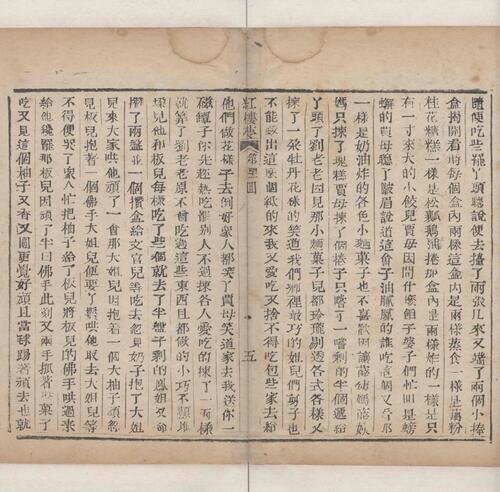 隨便吃些罷丫頭聽說便去擡了兩張几來又端了兩個小捧
盒揭開看時每個盒內兩樣這盒內是兩樣蒸食一樣是藕粉
桂花糖糕一樣是松瓤鵝油捲那盒內是兩樣炸的一樣是只
有一寸來大的小餃兒賈母因問什麼餡子婆子們忙回是螃
蟹的賈母聽了皺眉說道這會子油膩膩的誰吃這個又看那
一樣是奶油炸的各色小麵菓子也不喜歡因讓薛姨媽薛姨
媽只揀了塊糕賈母揀了一個捲子只嘗了一嘗剩的半個遞給
丫頭了劉老老因見那小麵菓子兒都玲瓏剔透各式各樣又
揀了一朶牡丹花樣的笑道我們鄉裡最巧的姐兒們剪子也
不能鉸出這麼個紙的來我又愛吃又捨不得吃包些家去給
紅樓夢 第四十一囬 五
他們做花樣子去倒好衆人都笑了賈母笑道家去我送你一
磁罈子你先趁熱吃罷別人不過揀各人愛吃的揀了一兩樣
就算了劉老老原不曾吃過這些東西且都做的小巧不顯堆
垜兒他和板兒每樣吃了些個就去了半盤子剩的鳳姐又命
攢了兩盤並一個攢盒給文官兒等吃去忽見奶子抱了大姐
兒來大家哄他頑了一會那大姐兒因抱着一個大柚子頑忽
見板兒抱着一個佛手大姐兒便要丫鬟哄他取去大姐兒等
不得便哭了衆人忙把柚子給了板兒將板兒的佛手哄過來
給他纔罷那板兒因頑了半日佛手此刻又兩手抓着些菓子
吃又見這個柚子又香又圓更覺好頑且當毬踢着頑去也就